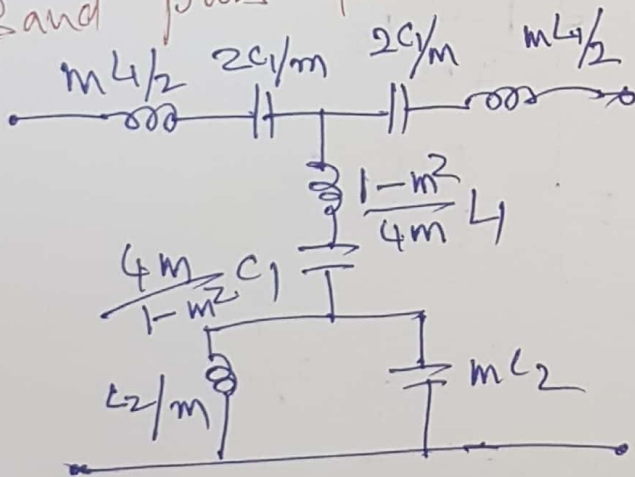 Band
mL1/2 2C1/m 2C1/m mL1/2
1-m²/4m L1
4m/1-m² C1
L2/m mC2